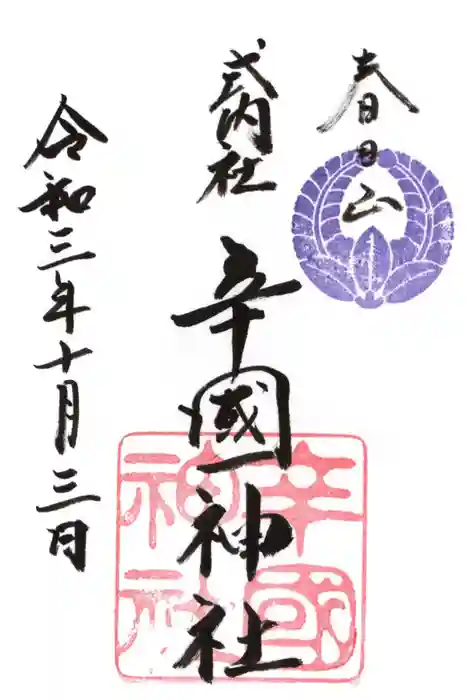 春日山
式内社
辛國神社
令和三年十月三日
辛國神社